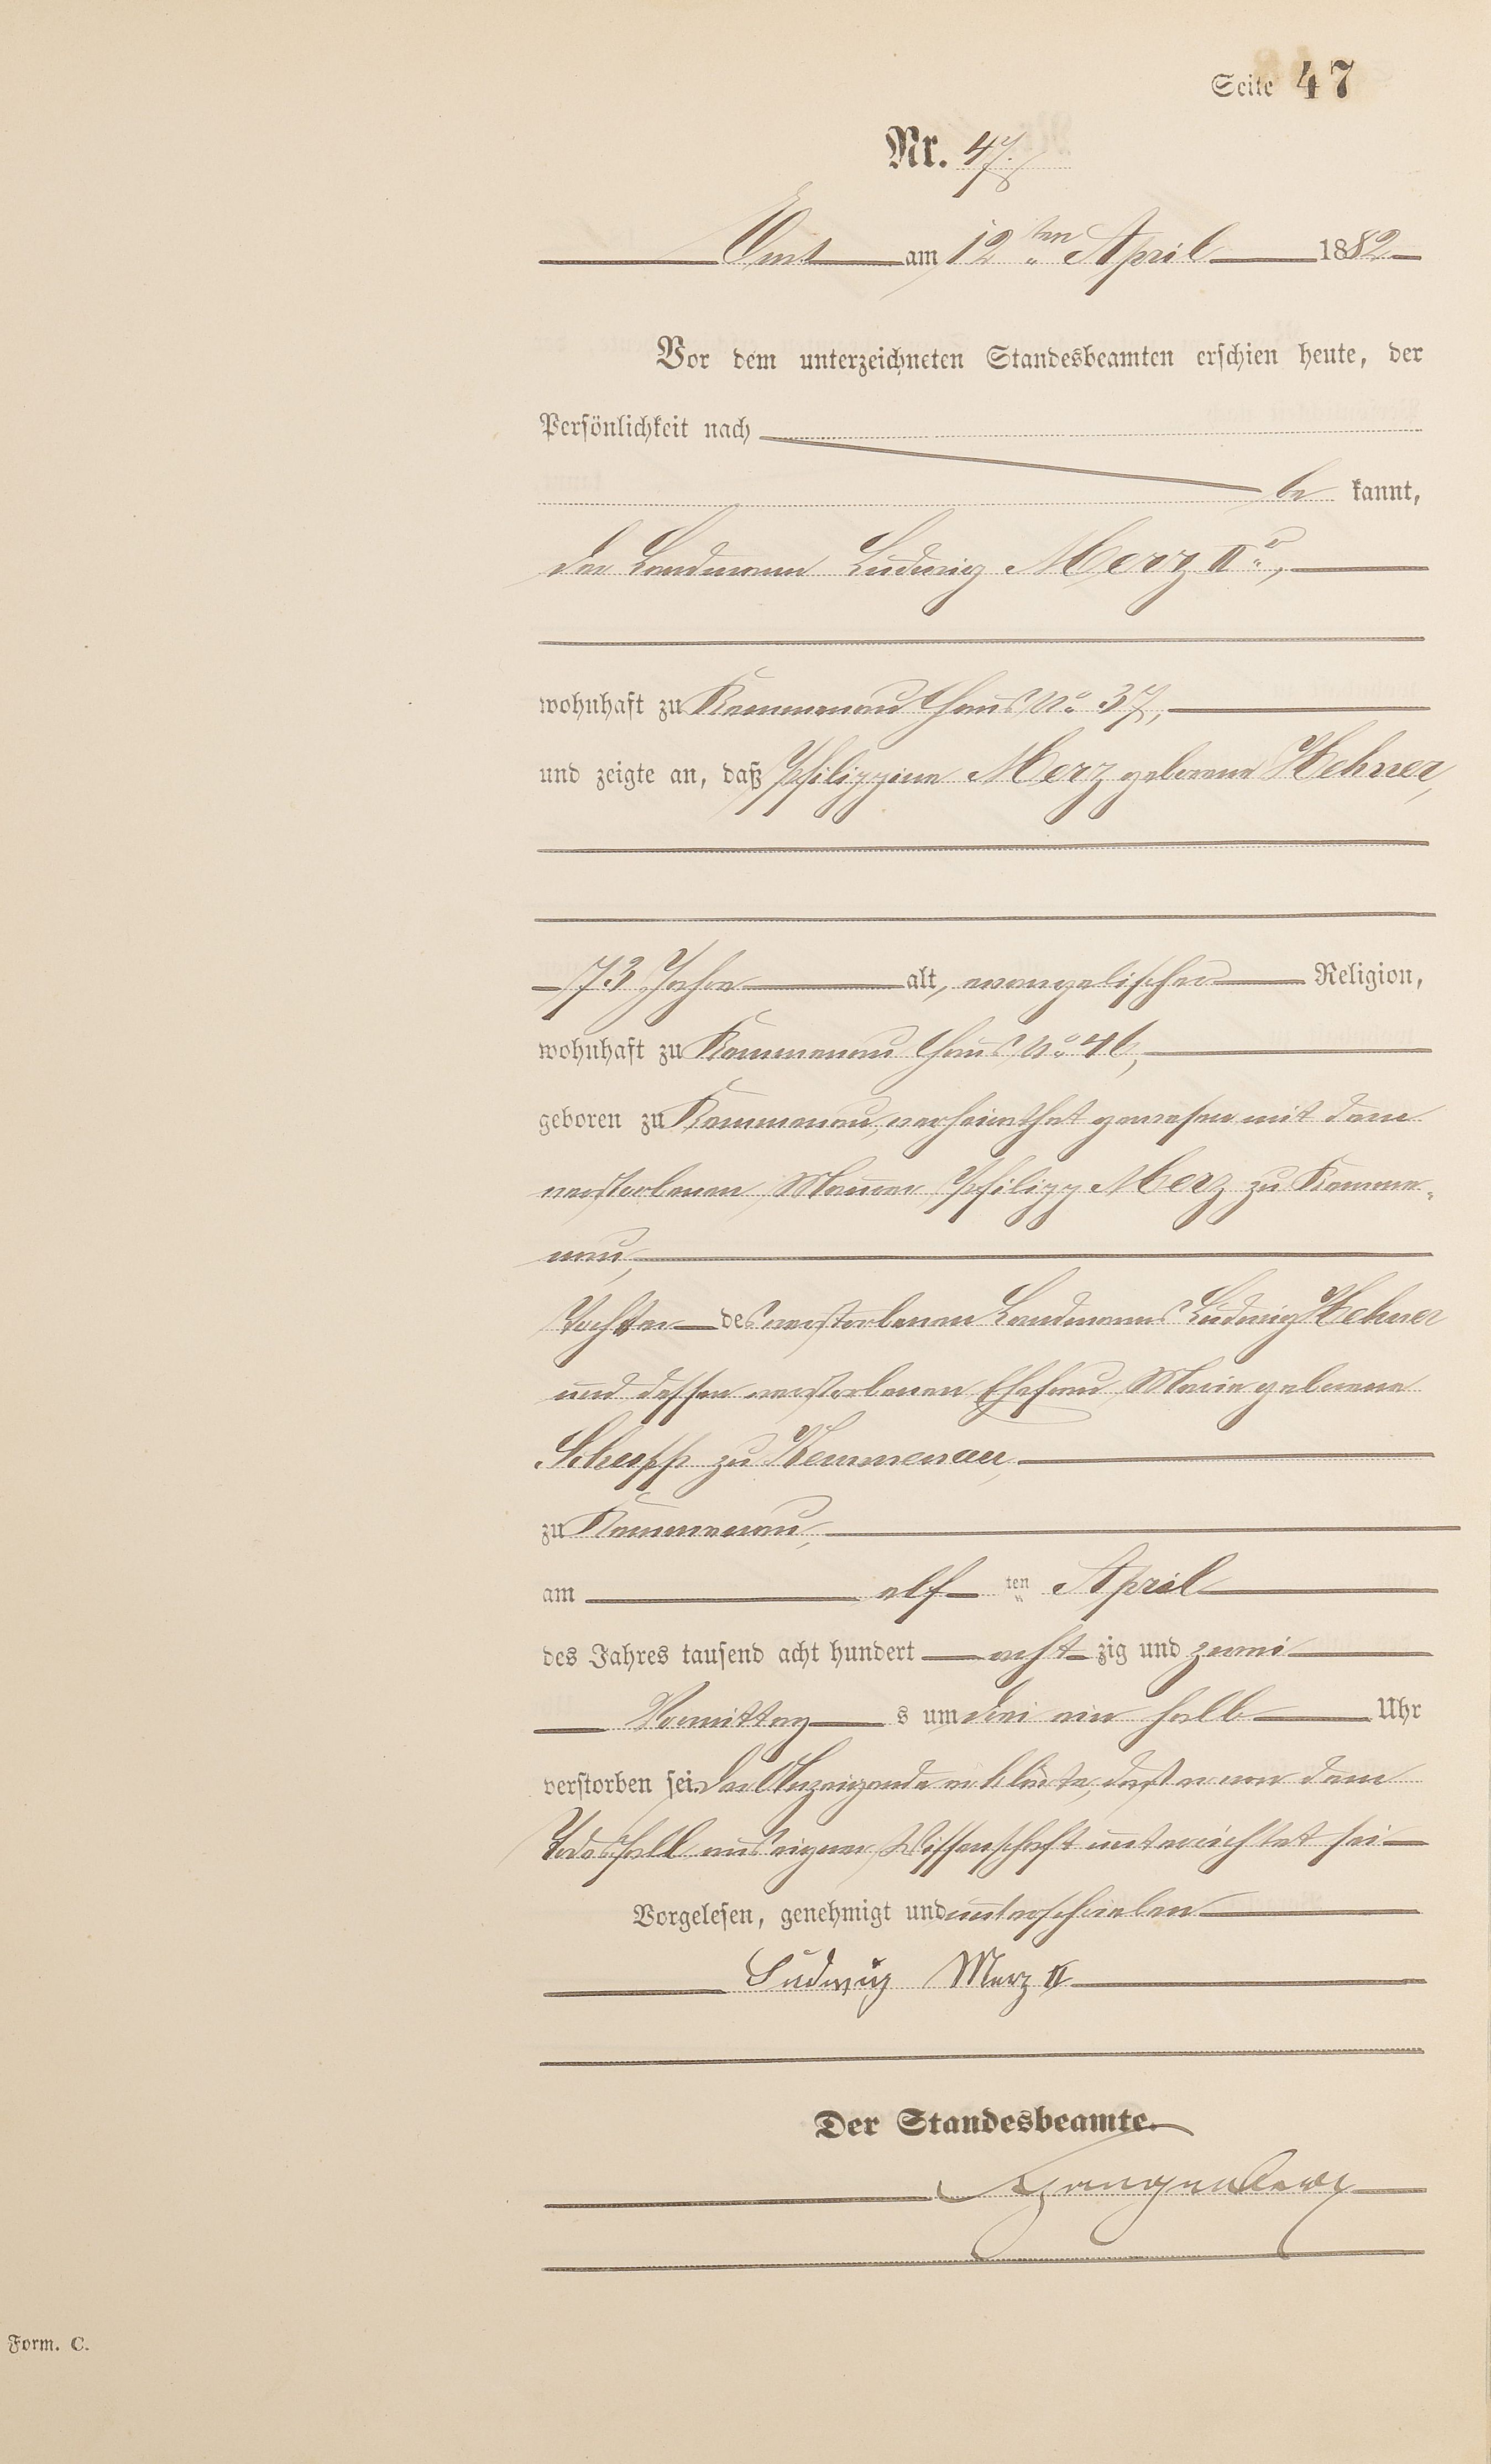 Seite 47
Nr. 47.
Ems am 12ten April 1882
Vor dem unterzeichneten Standesbeamten erschien heute, der
Persönlichkeit nach
be kannt,
der Landmann Ludwig Merz IIr,
wohnhaft zu Kemmenau Haus No 37,
und zeigte an, daß Philippine Merz geborene Hehner,
73 Jahre alt, evangelischer Religion,
wohnhaft zu Kemmenau Haus No 46,
geboren zu Kemmenau, verheirathet gewesen mit dem
verstorbenen Maurer Philipp Merz zu Kemme-
nau,
Tochter des verstorbenen Landmanns Ludwig Hehner
und dessen verstorbenen Ehefrau Marie geborene
Schupp zu Kemmenau,
zu Kemmenau,
am elf ten April
des Jahres tausend acht hundert acht zig und zwei
Vormittag s um drei ein halb Uhr
verstorben sei. Der Anzeigende erklärte, daß er von dem
Todesfall aus eigener Wissenschaft unterrichtet sei
Vorgelesen, genehmigt und unterschrieben
Ludwig Merz II
Der Standesbeamte.
Form. C.